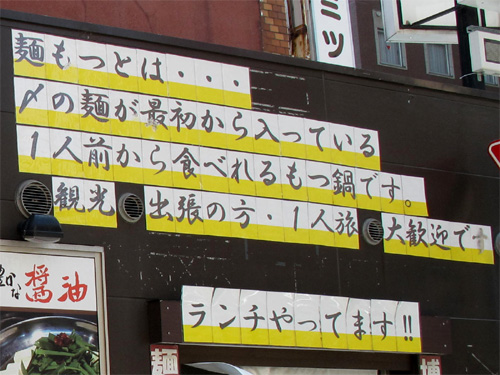 ミツ
麺もつとは・・・
〆の麺が最初から入っている
1人前から食べれるもつ鍋です。
観光 出張の方・1人旅 大歓迎です
豊かな醤油
ランチやってます!!
麺